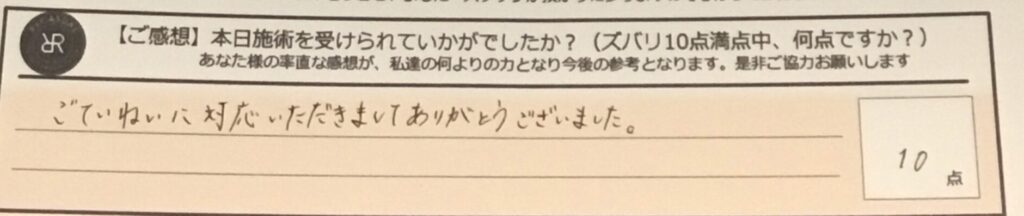 【ご感想】本日施術を受けられていかがでしたか？（ズバリ10点満点中、何点ですか？）
あなた様の率直な感想が、私達の何よりの力となり今後の参考となります。是非ご協力お願いします
ごていねいに対応いただきましてありがとうございました。
10点